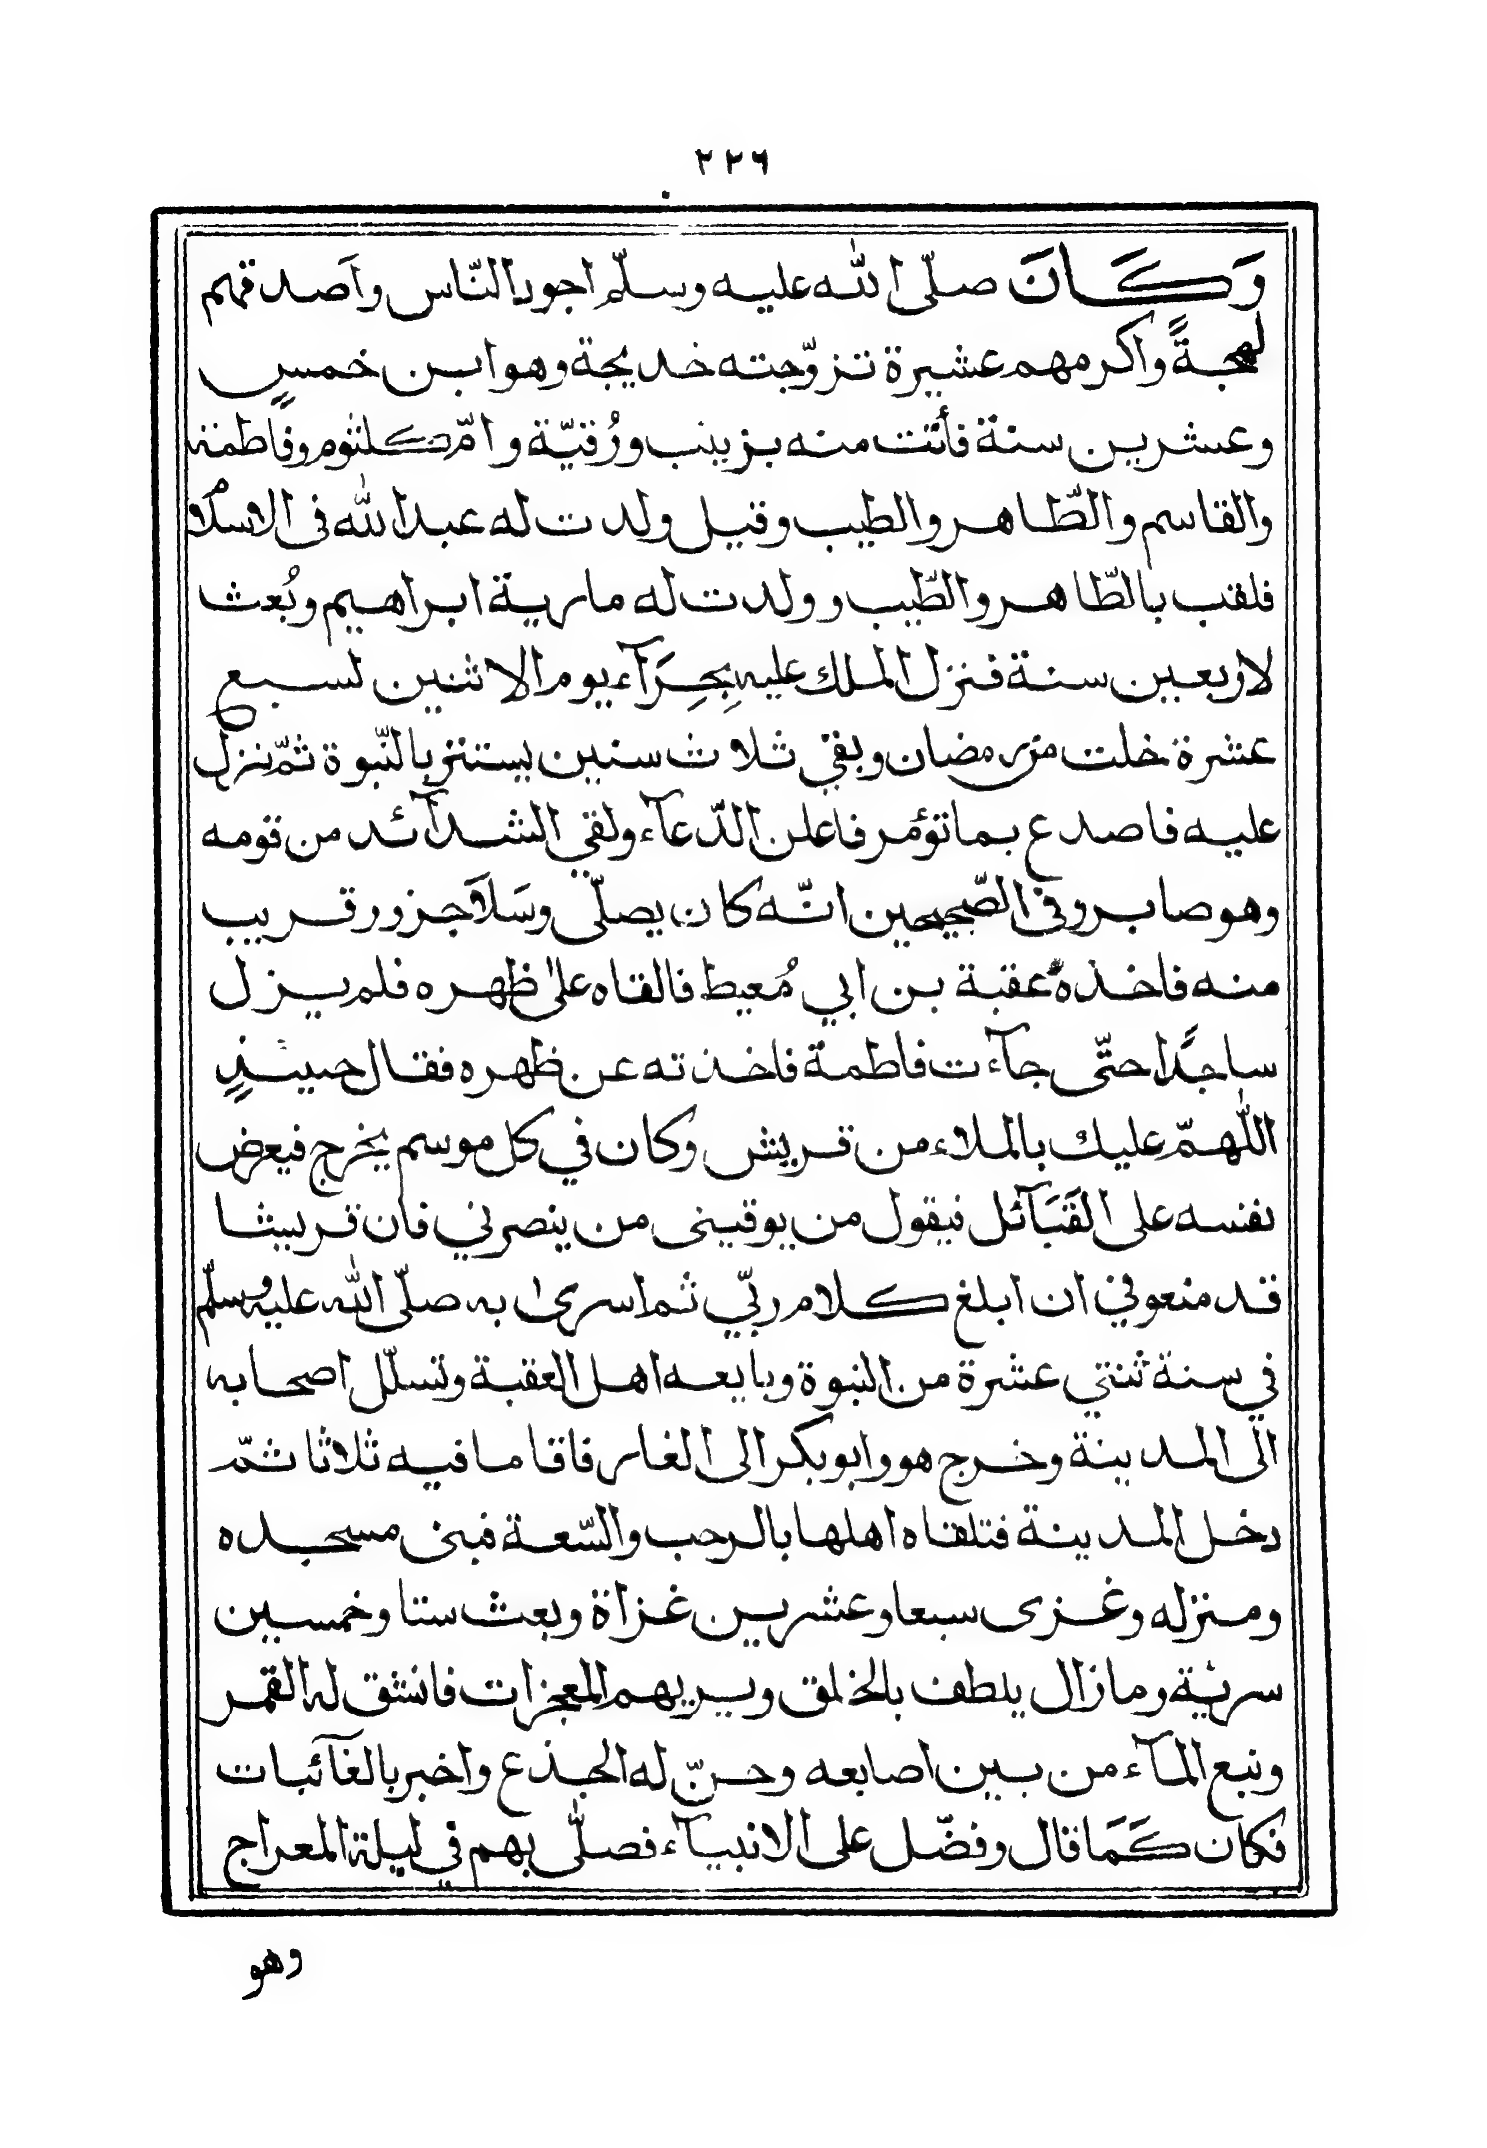 ٢٢٦
وَكَانَ صلّى الله عليه وسلّم اجود النّاس واَصدقهم
لهجةً واكرمهم عشيرة تزوّجته خديجة وهو ابن خمسٍ
وعشرين سنة فأتت منه بزينب ورُقيّة وامّ كلثوم وفاطمة
والقاسم والطّاهر والطيب وقيل ولدت له عبد الله فى الاسلام
فلقب بالطّاهر والطّيب وولدت له مارية ابراهيم وبُعث
لاربعين سنة فنزل الملك عليه بِحِرَآء يوم الاثنين لسبع
عشرة خلت من رمضان وبقي ثلاث سنين يستتر بالنّبوة ثمّ نزل
عليه فاصدع بما تؤمر فاعلن الدّعآء ولقي الشدآئد من قومه
وهو صابر وفي الصّحيحين انّه كان يصلّي وسَلَا جزور قريب
منه فاخذه عقبة بن ابي مُعيط فالقاه على ظهره فلم يزل
ساجدًا حتّى جآءت فاطمة فاخذته عن ظهره فقال حينئذٍ
اللّهمّ عليك بالملاء من قريش وكان في كل موسم يخرج فيعرض
نفسه على القَبَآئل فيقول من يوقينى من ينصرني فان قريشا
قد منعوني ان ابلغ كلام ربّي ثم اسرى به صلّى الله عليه وسلّم
في سنة ثنتي عشرة من النبوة وبايعه اهل العقبة وتسلّل اصحابه
الى المدينة وخرج هو وابو بكر الى الغار فاقاما فيه ثلاثا ثمّ
دخل المدينة فتلقاه اهلها بالرحب والسّعة فبنى مسجده
ومنزله وغزى سبعا وعشرين غزاة وبعث ستا وخمسين
سريّة وما زال يلطف بالخلق ويريهم المعجزات فانشق له القمر
ونبع المآء من بين اصابعه وحنّ له الجذع واخبر بالغآئبات
فكان كَمَا قال وفضّل على الانبيآء فصلّى بهم في ليلة المعراج
وهو